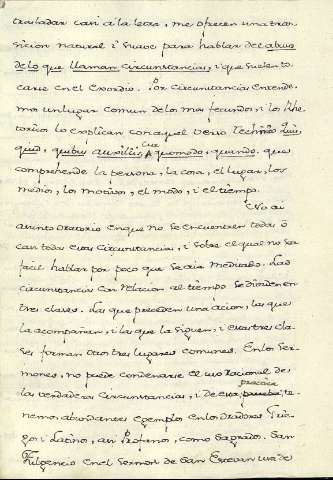 trasladar casi à la letra, me ofrecen una tran
sicion natural i suave para hablar del abuso
de lo que llaman circunstancias, i que suelen to
carse en el Exordio. Por circunstancias entende
mos un lugar comun de los mas fecundos, i los Rhe
toricos lo explican con aquel verso Technico Quis,
quid, quibus auxiliis, cur, quomodo, quando. que
comprehende la persona, la cosa, el lugar, los
medios, los motivos, el modo, i el tiempo.
No ai
asunto Oratorio en que no se encuentren todas ò
casi todas estas Circunstancias, i sobre el qual no sea
facil hablar por poco que se aia meditado. Las
circunstancias con relacion al tiempo se dividen en
tres clases. Las que preceden una acion, las que
la acompañan, i las que la siguen, i estas tres cla
ses forman otros tres lugares comunes. En los Ser
mones, no puede condenarse el uso racional de
las verdaderas Circunstancias, i de esta practica te
nemos abundantes egemplos en los Oradores Grie
gos i Latinos, asi Profanos, como Sagrados. San
Fulgencio en el Sermon de San Estevan usa de